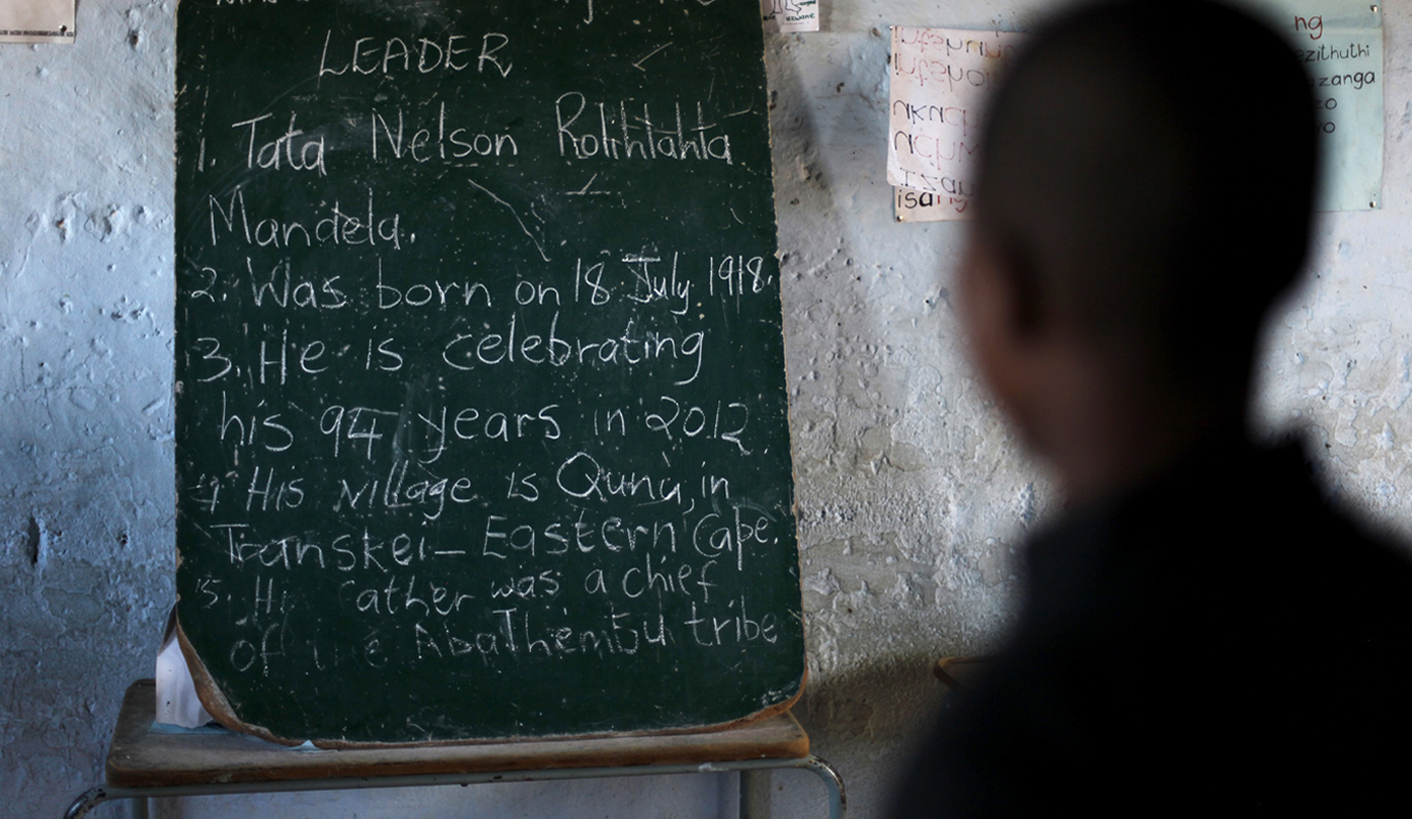 LEADER
1. Tata Nelson Rolihlahla
Mandela.
2. Was born on 18 July 1918.
3. He is celebrating
his 94 years in 2012.
4 His village is Qunu, in
Transkei – Eastern Cape.
5. was a chief
of AbaThembu tribe
isang
ng
ezithuthi
zanga
zo
o